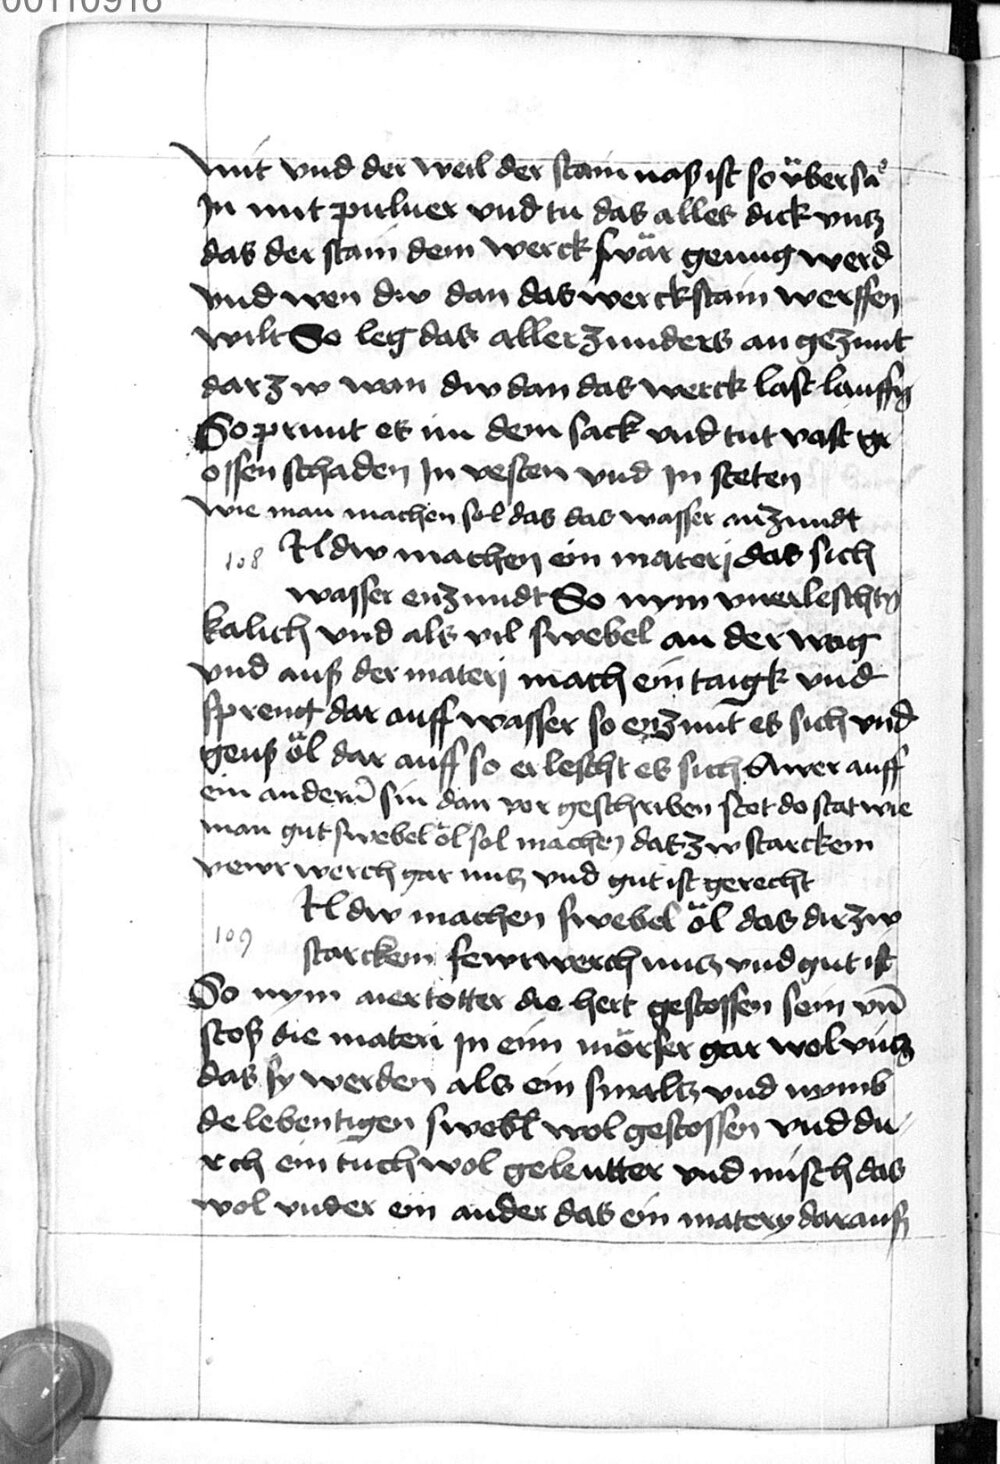 00110916
mit vnd der weil der stain naß ist so übersä
In mit puluer vnd tu das alles dick vntz
das der stain dem werck swär genug werd
vnd wen dw dan das werckstain werffen
wilt So leg das aller zunders an gezunt
dar zw wan dw dan das werck last lauffn
So prinnt es inn dem sack vnd tut vast gr
ossen schaden In vesten vnd In steten
wie man machen sol das das wasser anzundt
108 Il dw machen ein materj das sich
wasser enzundt So nym vnerleschtn
kalich vnd als vil swebel an der wag
vnd auß der materj mach ein taigk vnd
spreng dar auff wasser so enzunt es sich vnd
geuß öl dar auff so erlescht es sich Awer auff
ein andern sin dan vor geschriben stet do stat wie
man gut swebel öl sol machen das zw starckem
vewrwerch gar nutz vnd gut ist gerecht
Il dw machen swebel öl das dir zw
109 starckem fewrwerch nutz vnd gut ist
So nym aiertotter die hert gesossen sein vn̄
stoß die materi In einn mörser gar wol vntz
das sy werden als ein smaltz vnd nymb
de lebentigen swebl wol gestossen vnd du
rch ein tuch wol geleutter vnd misch das
wol vnder ein ander das ein matery darauß